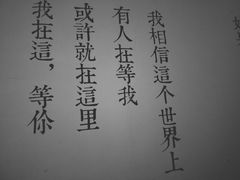 我相信這个世界上
有人在等我
或許就在這里
我在這，等你